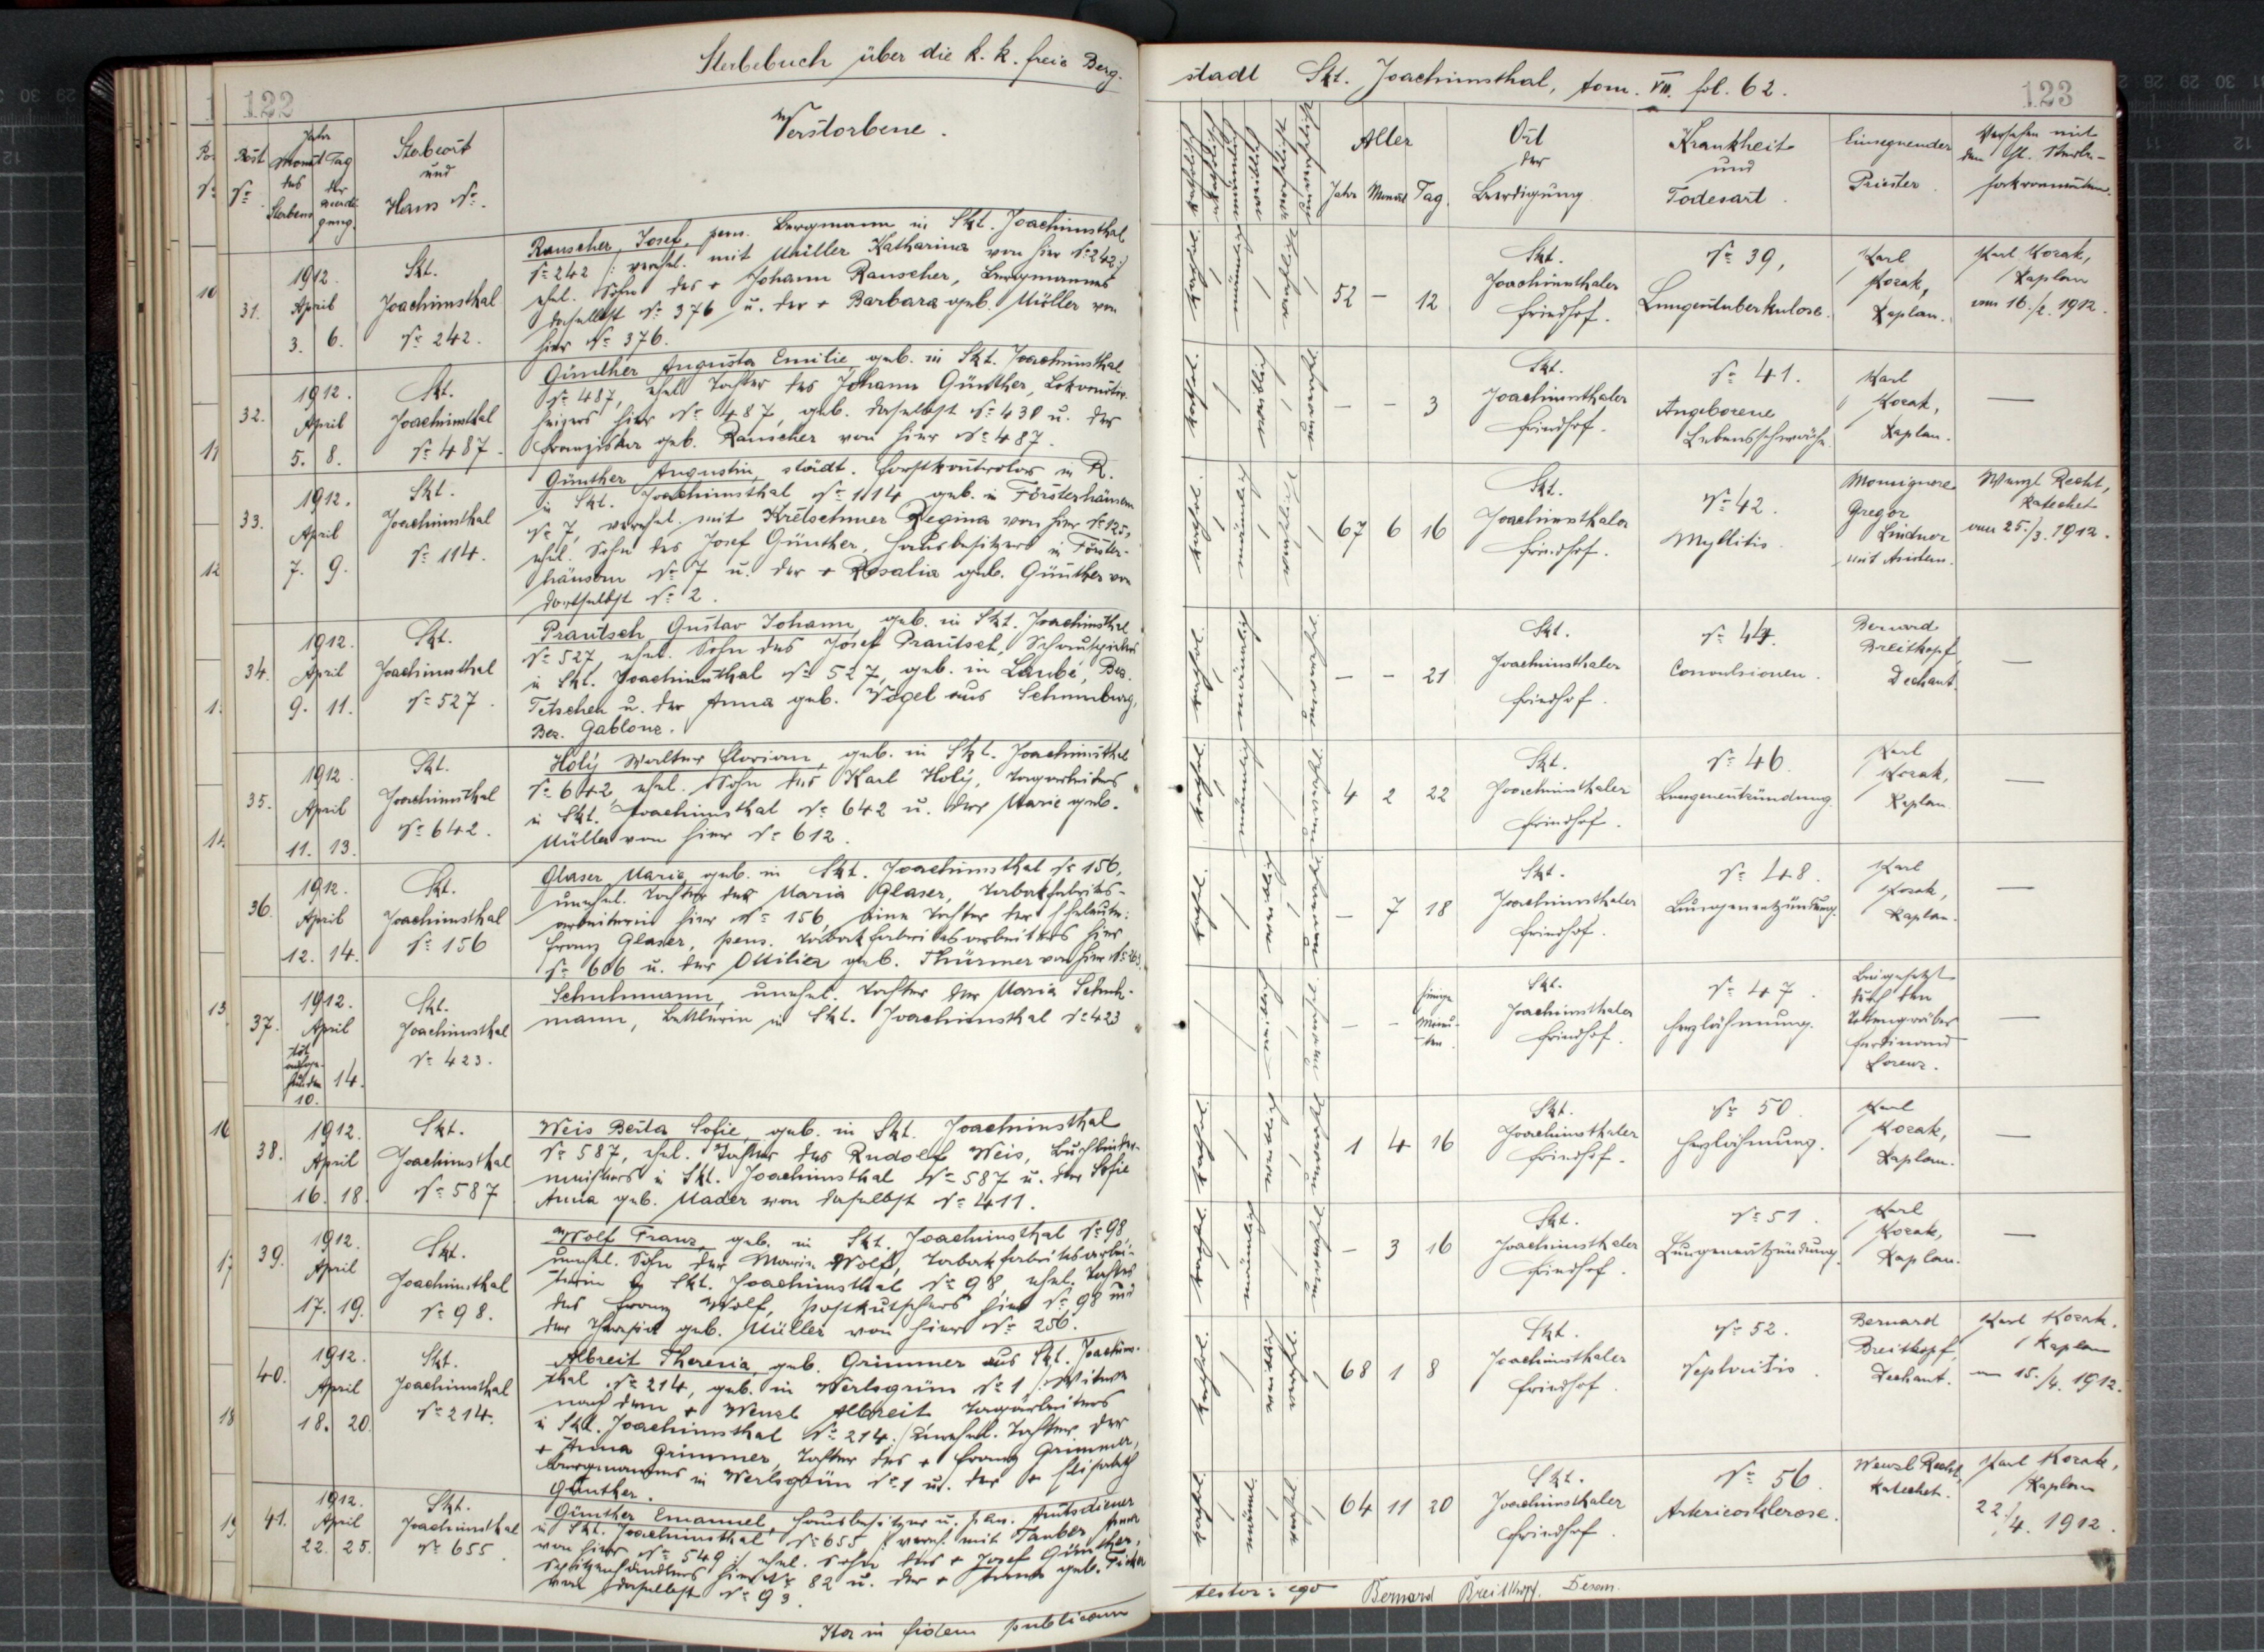 Sterbebuch über die k. k. freie Berg-
122
Verstorbene.
Post
Nr.
Jahr
Monat Tag
des
Sterbens
der
Beerdigung
Sterbeort
und
Haus Nr.
31.
1912.
April
3. 6.
Skt.
Joachimsthal
Nr. 242.
Rauscher, Josef, pens. Bergmann in Skt. Joachimsthal
Nr. 242 /: verehel. mit Müller Katharina von hier Nr. 242 :/
ehel. Sohn des + Johann Rauscher, Bergmannes
daselbst Nr. 376 u. der + Barbara geb. Müller von
hier Nr. 376.
32.
1912.
April
5. 8.
Skt.
Joachimsthal
Nr. 487.
Günther Augusta Emilie, geb. in Skt. Joachimsthal
Nr. 487, ehel. Tochter des Johann Günther, Lokomotiv-
heizers hier Nr. 487, geb. daselbst Nr. 430 u. der
Franziska geb. Rauscher von hier Nr. 487.
33.
1912.
April
7. 9.
Skt.
Joachimsthal
Nr. 114.
Günther Augustin, städt. Forstkontrolor in R.
in Skt. Joachimsthal Nr. 1114 geb. in Försterhäusern
Nr. 7, verehel. mit Kretschmer Regina von hier Nr. 125,
ehel. Sohn des Josef Günther, Hausbesitzers in Förster-
häusern Nr. 7 u. der + Rosalia geb. Günther von
dortselbst Nr. 2.
34.
1912.
April
9. 11.
Skt.
Joachimsthal
Nr. 527.
Prautsch Gustav Johann, geb. in Skt. Joachimsthal
Nr. 527, ehel. Sohn des Josef Prautsch, Schauspielers
in Skt. Joachimsthal Nr. 527, geb. in Laube, Bez.
Tetschen u. der Anna geb. Vogel aus Schumburg,
Bez. Gablonz.
35.
1912.
April
11. 13.
Skt.
Joachimsthal
Nr. 642.
Holý Walter Florian, geb. in Skt. Joachimsthal
Nr. 642, ehel. Sohn des Karl Holý, Tagarbeiters
in Skt. Joachimsthal Nr. 642 u. der Marie geb.
Müller von hier Nr. 612.
36.
1912.
April
12. 14.
Skt.
Joachimsthal
Nr. 156
Glaser Maria, geb. in Skt. Joachimsthal Nr. 156,
unehel. Tochter der Maria Glaser, Tabakfabriks-
arbeiterin hier Nr. 156, eine Tochter der Eheleute:
Franz Glaser, pens. Tabakfabriksarbeiters hier
Nr. 606 u. der Ottilia geb. Thürmer von hier
37.
1912.
April
tot
aufge-
funden
10.
14.
Skt.
Joachimsthal
Nr. 423.
Schuhmann, unehel. Tochter der Maria Schuh-
mann, Bettlerin in Skt. Joachimsthal Nr. 423
38.
1912.
April
16. 18.
Skt.
Joachimsthal
Nr. 587
Weis Berta Sofie, geb. in Skt. Joachimsthal
Nr. 587, ehel. Tochter des Rudolf Weis, Buchbinder-
meisters in Skt. Joachimsthal Nr. 587 u. der Sofie
Anna geb. Mader von daselbst Nr. 411.
39.
1912.
April
17. 19.
Skt.
Joachimsthal
Nr. 98.
Wolf Franz, geb. in Skt. Joachimsthal Nr. 98,
unehel. Sohn der Maria Wolf, Tabakfabriksarbei-
terin in Skt. Joachimsthal Nr. 98, ehel. Tochter
des Franz Wolf, Postkutschers hier Nr. 98 und
der Theresia geb. Müller von hier Nr. 256.
40.
1912.
April
18. 20.
Skt.
Joachimsthal
Nr. 214.
Albreit Theresia, geb. Grimmer aus Skt. Joachims-
thal Nr. 214, geb. in Werlsgrün Nr. 1 /: Witwe
nach dem + Wenzl Albreit Tagarbeiters
in Skt. Joachimsthal Nr. 214 :/ unehel. Tochter der
+ Anna Grimmer, Tochter des + Franz Grimmer,
Bergmannes in Werlsgrün Nr. 1 u. der + Elisabeth
Günther.
41.
1912.
April
22. 25.
Skt.
Joachimsthal
Nr. 655.
Günther Emanuel, Hausbesitzer u. pen. Amtsdiener
in Skt. Joachimsthal Nr. 655 /: vereh. mit Tauber Anna
von hier Nr. 549 :/ ehel. Sohn des + Josef Günther,
Spitzenhändlers hier Nr. 82 u. der + Anna geb.
von daselbst Nr. 93.
Ita in fidem publicam
stadt Skt. Joachimsthal, tom. VII. fol. 62.
123
Alter
Jahr Monat Tag.
Ort
der
Beerdigung
Krankheit
und
Todesart.
Einsegnender
Priester.
Versehen mit
den hl. Sterbe-
sakramenten.
kathol.
männlich
verehelicht
52 — 12
Skt.
Joachimsthaler
Friedhof.
Nr. 39,
Lungentuberkulose.
Karl
Kozak,
Kaplan.
Karl Kozak,
Kaplan
am 16./2. 1912.
kathol.
weiblich
— — 3
Skt.
Joachimsthaler
Friedhof.
Nr. 41.
Angeborene
Lebensschwäche.
Karl
Kozak,
Kaplan.
—
kathol.
männlich
67 6 16
Skt.
Joachimsthaler
Friedhof.
Nr. 42.
Myelitis.
Monsignore
Gregor
Lindner
mit Andern.
Wenzl Recht,
Katechet
am 25./3. 1912.
kathol.
männlich
— — 21
Skt.
Joachimsthaler
Friedhof.
Nr. 44.
Convulsionen.
Bernard
Breitkopf,
Dechant.
—
kathol.
männlich
4 2 22
Skt.
Joachimsthaler
Friedhof.
Nr. 46.
Lungenentzündung.
Karl
Kozak,
Kaplan.
—
kathol.
weiblich
— 7 18
Skt.
Joachimsthaler
Friedhof.
Nr. 48.
Lungenentzündung.
Karl
Kozak,
Kaplan.
—
weiblich
— — Einige
Minu-
ten.
Skt.
Joachimsthaler
Friedhof.
Nr. 47.
Herzlähmung.
Beigesetzt
durch den
Totengräber
Ferdinand
Lorenz.
—
kathol.
1 4 16
Skt.
Joachimsthaler
Friedhof.
Nr. 50.
Herzlähmung.
Karl
Kozak,
Kaplan.
—
kathol.
männlich
— 3 16
Skt.
Joachimsthaler
Friedhof.
Nr. 51.
Lungenentzündung.
Karl
Kozak,
Kaplan.
—
kathol.
68 1 8
Skt.
Joachimsthaler
Friedhof.
Nr. 52.
Nephritis.
Bernard
Breitkopf,
Dechant.
Karl Kozak,
Kaplan
am 15./4. 1912.
kathol.
männl.
64 11 20
Skt.
Joachimsthaler
Friedhof.
Nr. 56
Arteriosklerose.
Wenzl Recht,
Katechet.
Karl Kozak,
Kaplan
22./4. 1912.
testor: ego Bernard Breitkopf. Decan.